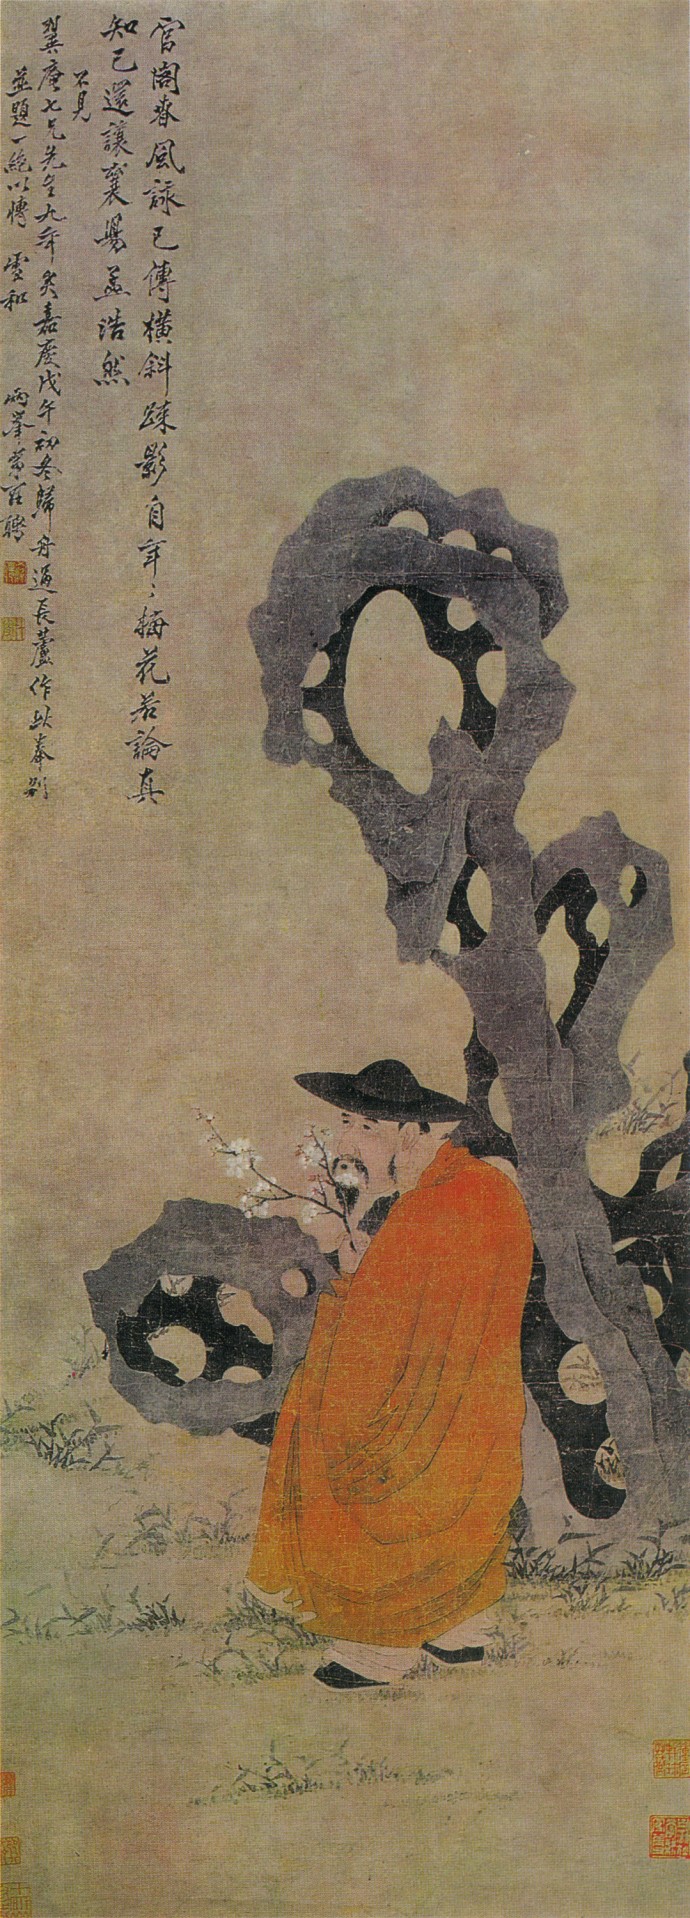 官閣春風詠已傳橫斜疎影自年〻梅花若論真
知己還讓襄陽孟浩然
不見
巽庵七兄先生九年矣嘉慶戊午初冬歸舟過長蘆作此奉別
並題一絕以博 雯和
兩峯 羅聘